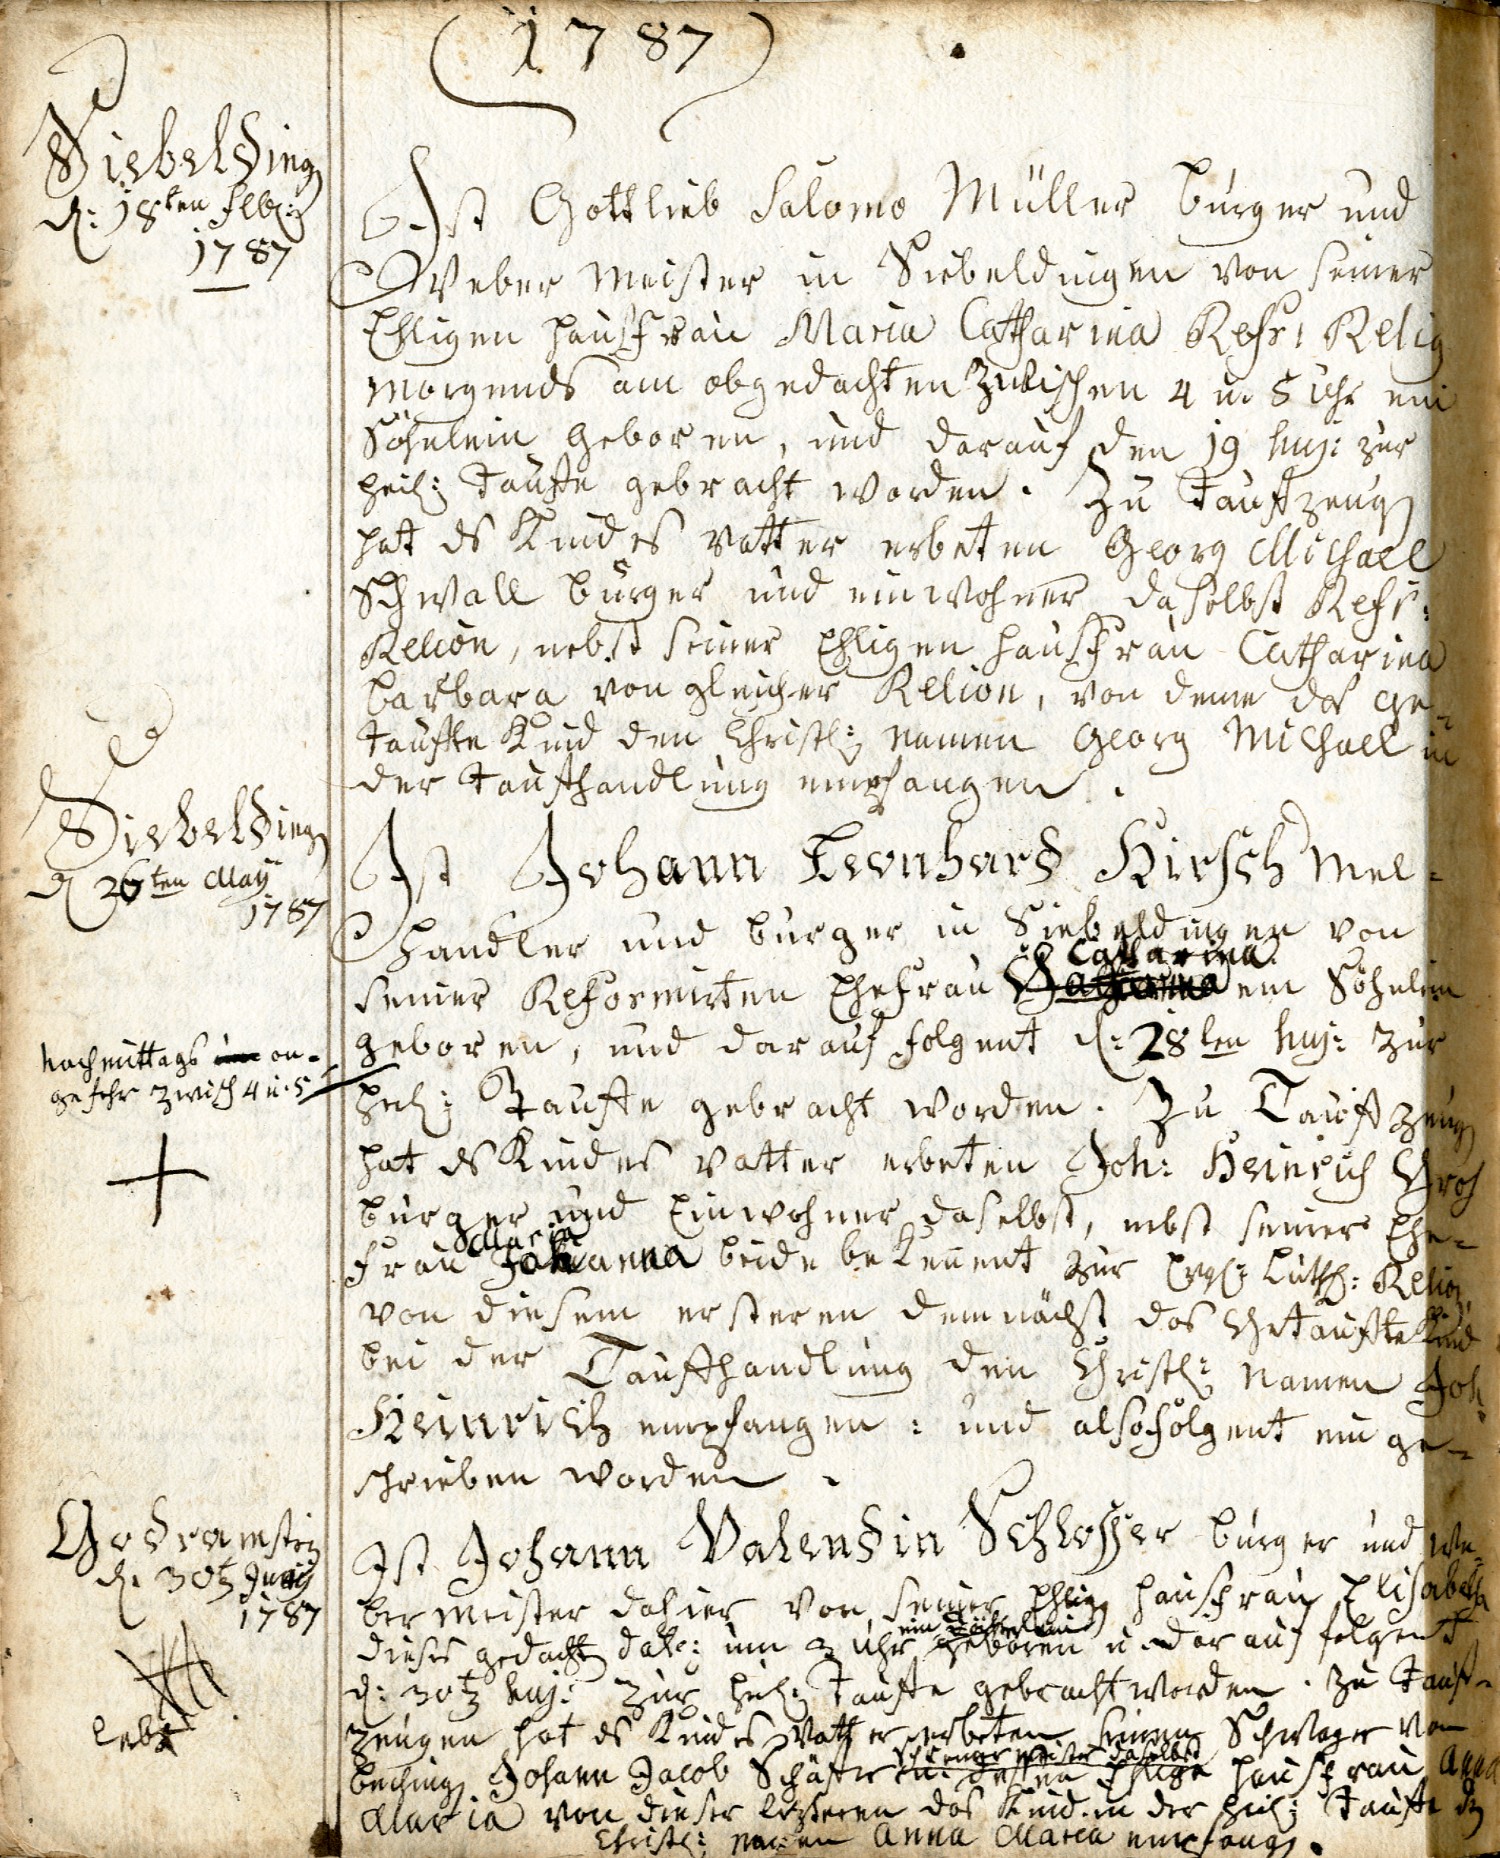 (1787)
Siebelding
d: 18ten Feb:
1787
Ist Gottlieb Salomo Müller burger und
Weber Meister in Siebeldingen von seiner
Ehligen hausfrau Maria Catharina Refr: Relig
morgends am obgedachten zwischen 4 u. 5 Uhr ein
Söhnlein geboren, und darauf den 19 huj: zur
heil: Tauffe gebracht worden. Zu Taufzeug
hat ds Kindes vatter erbeten Georg Michael
Schwall burger und einwohner daselbst Refr:
Relion, nebst seiner Ehligen hausfrau Catharina
barbara von gleicher Relion, von deme das ge-
tauffte Kind den Christl: namen Georg Michael in
der Taufhandlung empfangen.
Siebelding
d 26ten May
1787
Ist Johann Leonhard Hirsch Mel-
handler und burger in Siebeldingen von
seiner Reformirten Ehefrau Catharina ein Söhnlein
geboren, und darauf folgent d: 28ten huj: zur
Nachmittags on-
gefehr zwisch 4 u. 5
heil: Tauffe gebracht worden. Zu Taufzeug
hat ds Kindes vatter erbeten Joh: Heinrich Groh
burger und Einwohner daselbst, nebst seiner Ehe-
frau Maria Johanna beide bekennent zur Evgl: Luth: Relion,
von diesem ersteren demnächst das Getauffte Kind
bei der Taufhandlung den Christl: namen Joh:
Heinrich empfangen: und alsofolgent ein ge-
schrieben worden.
Godramstein
d. 30t Juny
1787
lebt
Ist Johann Valendin Schlosser burger und We-
ber meister dahier von seiner Ehlig hausfrau Elisabeth
dieses gedacht date: um 3 Uhr ein Töchterlein geboren u darauf folgent
d: 30t huj: zur heil: Tauffe gebracht worden. Zu Tauf-
zeugen hat ds Kindes Vatter erbeten seinen Schwager von
beching Johann Jacob Schäffer meister daselbst u: dessen Ehlige hausfrau Anna
Maria von dieser letzteren das Kind in der heil: Tauffe dn
Christl: namen Anna Maria empfang.